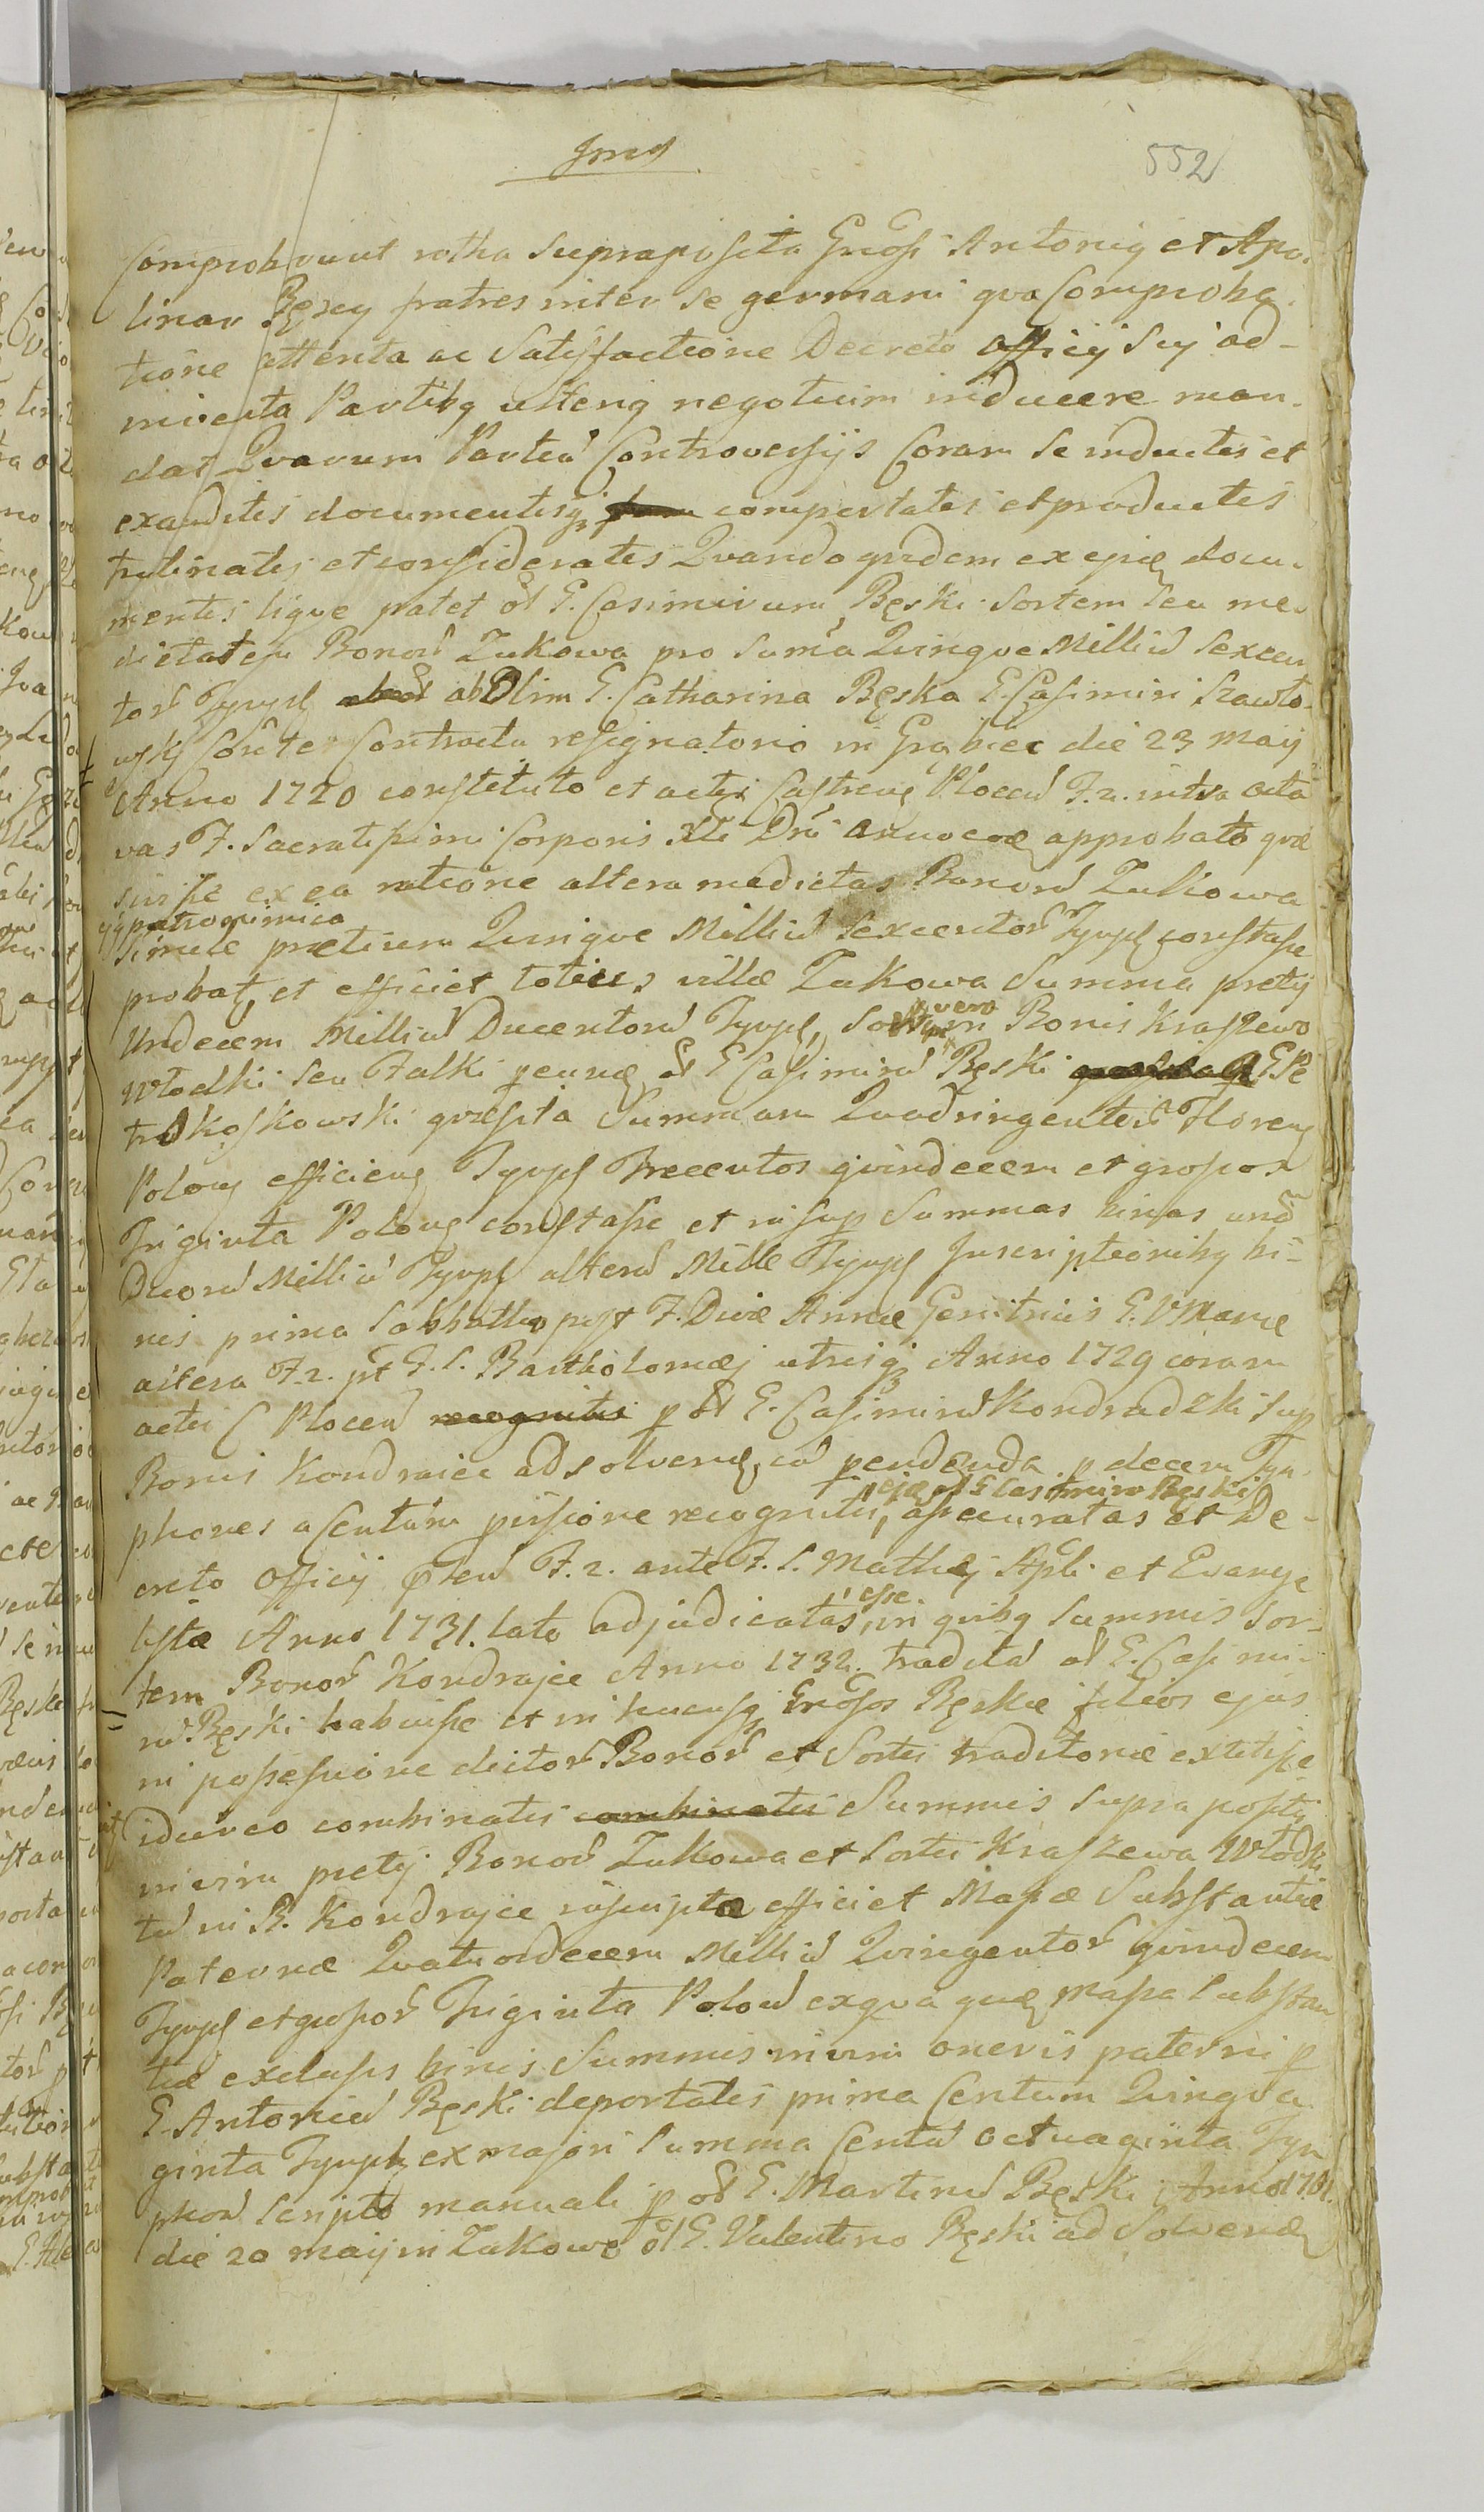 552
Comprobarunt rotha supraposita Grosi Antonig et Apo-
linar Bęscy fratres inter se germani qva Comproba
tione attenta ac Satisfactione Decreto officij Sui ad-
inventa Partibq ulterig negotium inducere man-
dat Qvarum Partiu Controversijs Coram se inductis et
exauditis documentisq comportatis et productis
trutinatis et consideratis Qvandoqvidem ex docu-
mentis liqve patet ol G. Casimirum Bęski Sortem seu me-
dietatem Bonor Zukowa pro suma Qvinqve Milliu Sexcen
tor Tynph ab Olim G. Catharina Bęska G. Casimiri Szawlo-
wski Consorte Contractu resignatorio in Grąbiec die 23 Maij
Anno 1720 constituto et actis Castrens Plocen F. 2. intra octa
vas F. Sacratissimi Corporis Xti Dni approbato
ex ea ratione altera medietas Bonoru Zukowa
patrogimica
simile pretium Qvinqve Milliu Sexcentor Tynph constasse
probat, et efficiet totius villæ Zukowa Summa pretij
Undecem Milliu Ducentoru Tynph, Sortem vero in Bonis Kraszewo
Włodki seu Falki ol G Casimiru Bęski G Pe
tru Koskowski Summam Qvadringentor Floren
Polon efficien Tynph Trecentos qvindecem et grossos
Triginta Polon constasse et insup Summas binas una
Duoru Milliu Tynph altera Mille Tynph Inscriptionibq bi-
nis prima Sabbatho post F. Divæ Annæ Genitricis G. V Mariæ
altera F. 2. pt F. S. Bartholomæj utrisqz Anno 1729 coram
actis C Plocen p ol G. Casimiru Kondradzki sup
Bonis Kondrajec ad solvend, cu pendenda p decem Tyn
phones a Centum recognitis, ol G Casimiro Bęski assecuratas et De-
creto officij F. 2. ante F. S. Mathej Apli et Evange
listæ Anno 1731. lato adjudicatas esse, in qvibq Summis Sor-
tem Bonor Kondrajec Anno 1732. tradita ol G. Casimi-
ru Bęski habuisse et in hucusqz Grosos Bęskie filios ejus
in possessione dictor Bonor et Sortis traditoriæ extitisse
idcirco combinatis Summis supra positis
nimiru pretij Bonor Zukowa et Sortis Kraszewa Włodki
tu in B. Kondrajec inscriptæ efficiet Massæ Substantiæ
Paternæ Qvatuordecem Milliu Qvingentor qvindecem
Tynph et grossor Triginta Polon ex qva massa Substan
tiæ exclusis binis Summis nimiru oneris paterni p
G. Antoniu Bęski deportatis prima Centum Qvinqva
ginta Tynph ex majori Summa Centu octuaginta Tyn
phor scripto manuali p ol G. Martinu Bęski Anno 1701.
die 20 maij in Zukowo ol G. Valentino Bęski ad Solvend